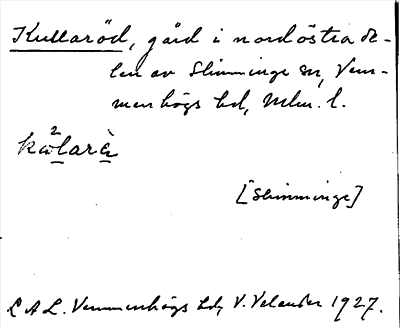 Kullaröd, gård i nordöstra de-
len av Slimminge sn, Vem-
menhögs hd, Mlm. l.
[Slimminge]
L A L. Vemmenhögs hd, V. Velander 1927.